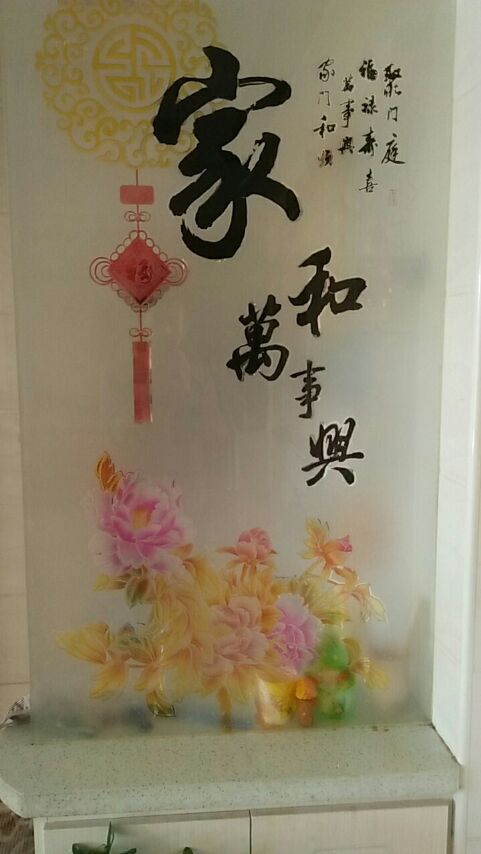 家
和
萬
事
興
聚門庭
福禄壽喜
萬事興
家門和順